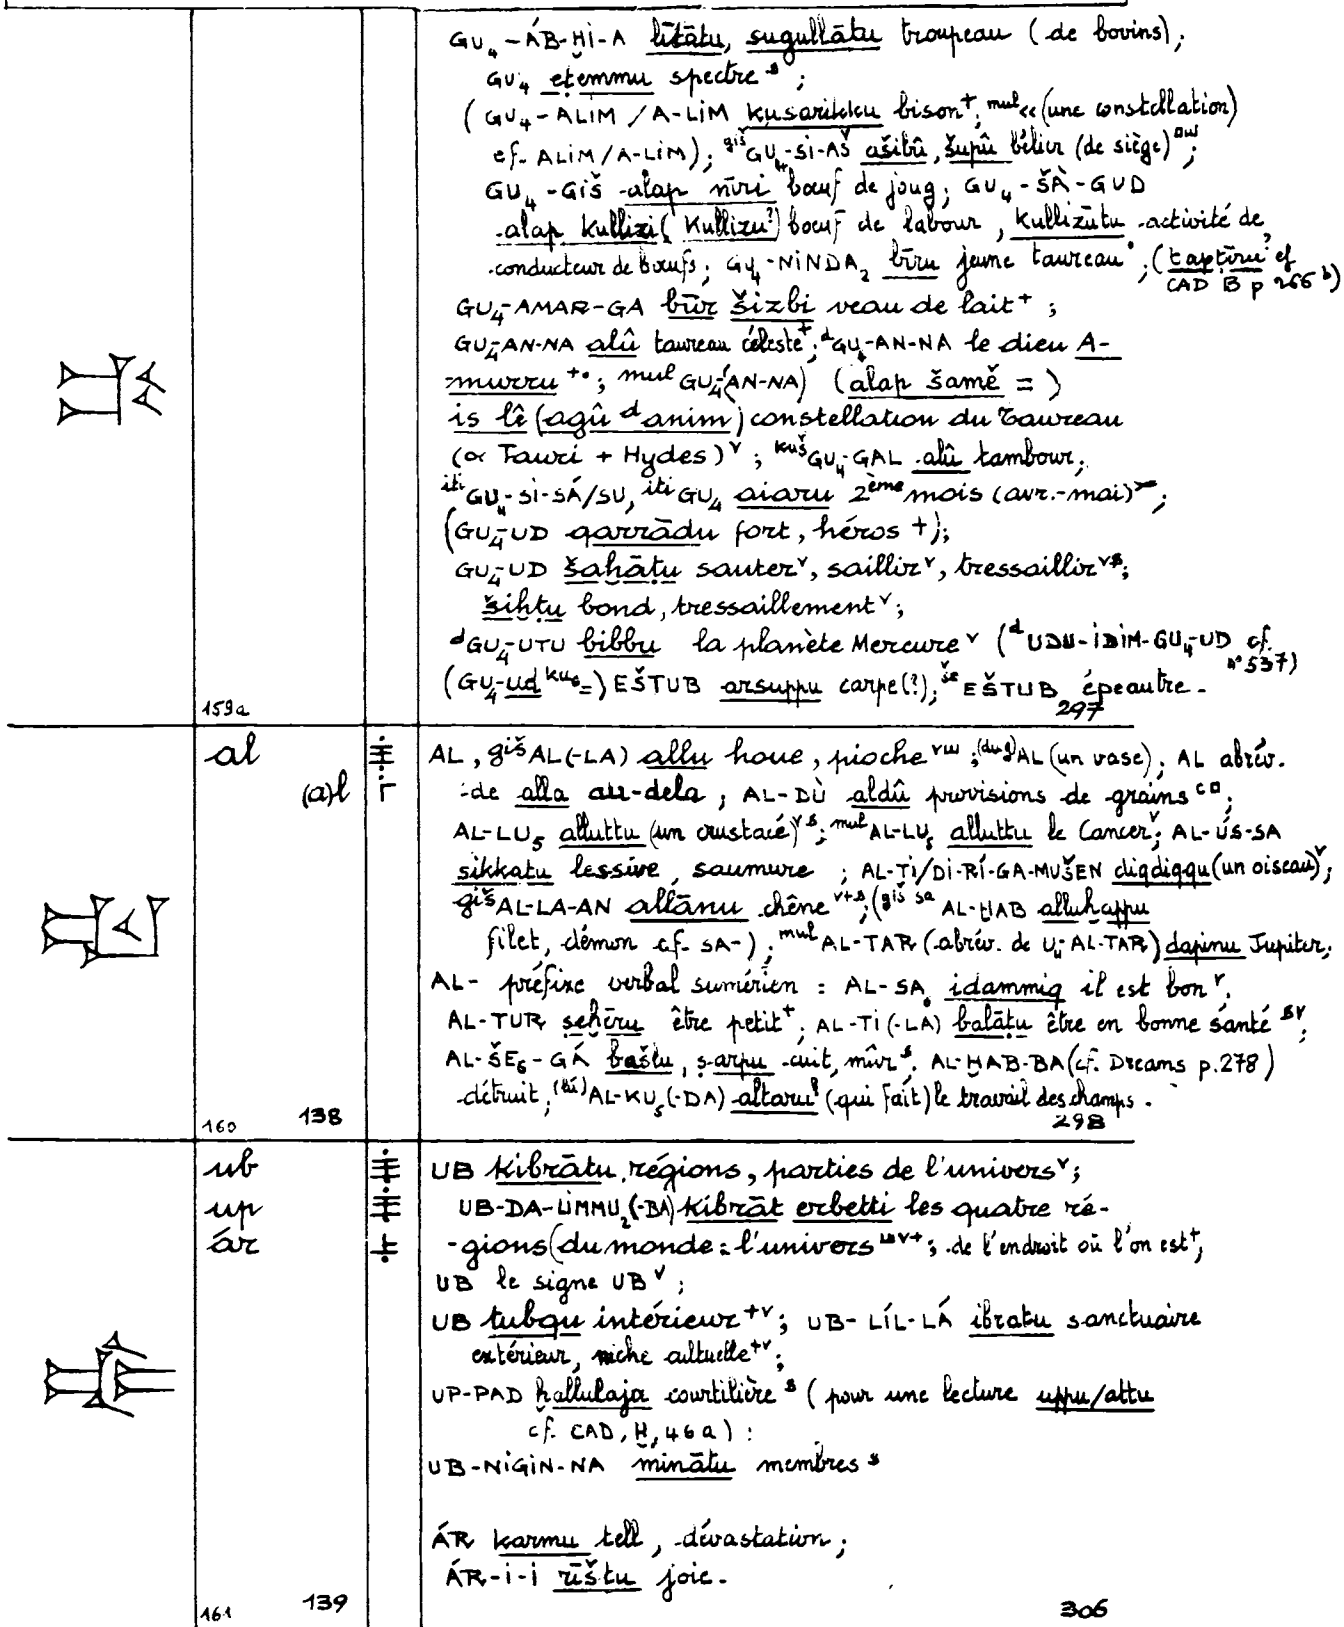 GU₄-ÁB-ḪI-A lītātu, sugullātu troupeau (de bovins);
GU₄ eṭemmu spectre ˢ;
(GU₄-ALIM / A-LIM kusarikku bison⁺; mul << (une constellation)
cf. ALIM/A-LIM); giš GU₄-SI-AŠ ašibû, šupû bélier (de siège);
GU₄-GIŠ alap nīri bœuf de joug; GU₄-ŠÀ-GUD
alap kullizi (kullizu?) bœuf de labour, kullizūtu activité de
conducteur de bœufs; GU₄-NINDA₂ bīru jeune taureau; (taptīru? cf
CAD B p 266 b)
GU₄-AMAR-GA būr šizbi veau de lait⁺;
GU₄-AN-NA alû taureau céleste⁺; ᵈGU₄-AN-NA le dieu A-
murru⁺•; mul GU₄(-AN-NA) (alap šamê =)
is lê (agû ᵈanim) constellation du Taureau
(α Tauri + Hydes)ᵛ; kuš GU₄-GAL alû tambour;
iti GU₄-SI-SÁ/SU, iti GU₄ aiaru 2ème mois (avr.-mai);
(GU₄-UD qarrādu fort, héros +);
GU₄-UD šaḫāṭu sauterᵛ, saillirᵛ, tressaillirᵛˢ;
šiḫṭu bond, tressaillementᵛ;
ᵈGU₄-UTU bibbu la planète Mercureᵛ (ᵈUDU-IDIM-GU₄-UD cf.
n° 537)
(GU₄-ud ku₆ =) EŠTUB arsuppu carpe(?); še EŠTUB épeautre.
159a 297
al AL, giš AL(-LA) allu houe, pioche; (dug) AL (un vase); AL abrév.
(a)l de alla au-dela; AL-DÙ aldû provisions de grains;
AL-LU₅ alluttu (un crustacé)ᵛˢ; mul AL-LU₅ alluttu le Cancerᵛ; AL-ÚS-SA
sikkatu lessive, saumure; AL-TI/DI-RÍ-GA-MUŠEN diqdiqqu (un oiseau)ᵛ;
giš AL-LA-AN allānu chêneᵛ⁺ˢ; (giš sa AL-ḪAB alluḫappu
filet, démon cf. SA-); mul AL-TAR (abrév. de U₄-AL-TAR) dapinu Jupiter;
AL- préfixe verbal sumérien : AL-SA₆ idammiq il est bonᵛ;
AL-TUR ṣeḫēru être petit⁺; AL-TI(-LA) balāṭu être en bonne santé ˢᵛ;
AL-ŠE₆-GÁ bašlu, ṣarpu cuit, mûrˢ; AL-ḪAB-BA (cf. Dreams p.278)
détruit; (lú) AL-KU₅(-DA) altaru? (qui fait) le travail des champs.
160 138 298
ub UB kibrātu régions, parties de l'universᵛ;
up UB-DA-LIMMU₂(-BA) kibrāt erbetti les quatre ré-
ár -gions (du monde : l'univers; de l'endroit où l'on est⁺;
UB le signe UBᵛ;
UB tubqu intérieur⁺ᵛ; UB-LÍL-LÁ ibratu sanctuaire
extérieur, niche cultuelle⁺ᵛ;
UP-PAD ḫallulaja courtilièreˢ (pour une lecture uppu/attu
cf. CAD, Ḫ, 46a):
UB-NIGIN-NA minātu membresˢ
ÁR karmu tell, dévastation;
ÁR-i-i rīštu joie.
161 139 306